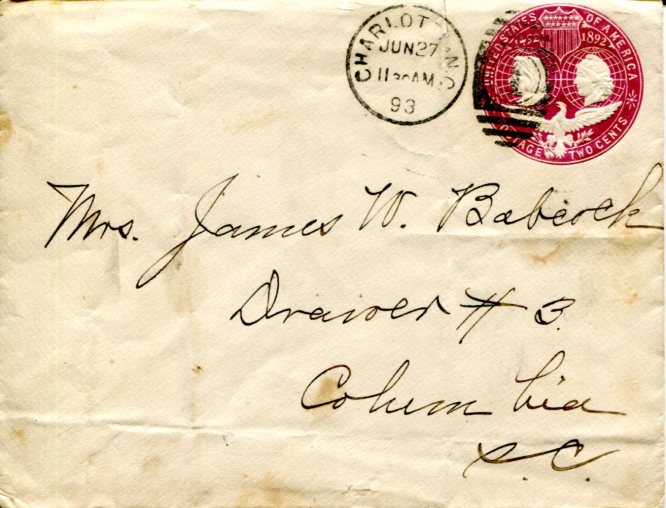 CHARLOTTE, N.C.
JUN 27
11 30 AM
93
UNITED STATES OF AMERICA
1892
POSTAGE TWO CENTS
Mrs. James W. Babcock
Drawer # 3.
Columbia
S.C.